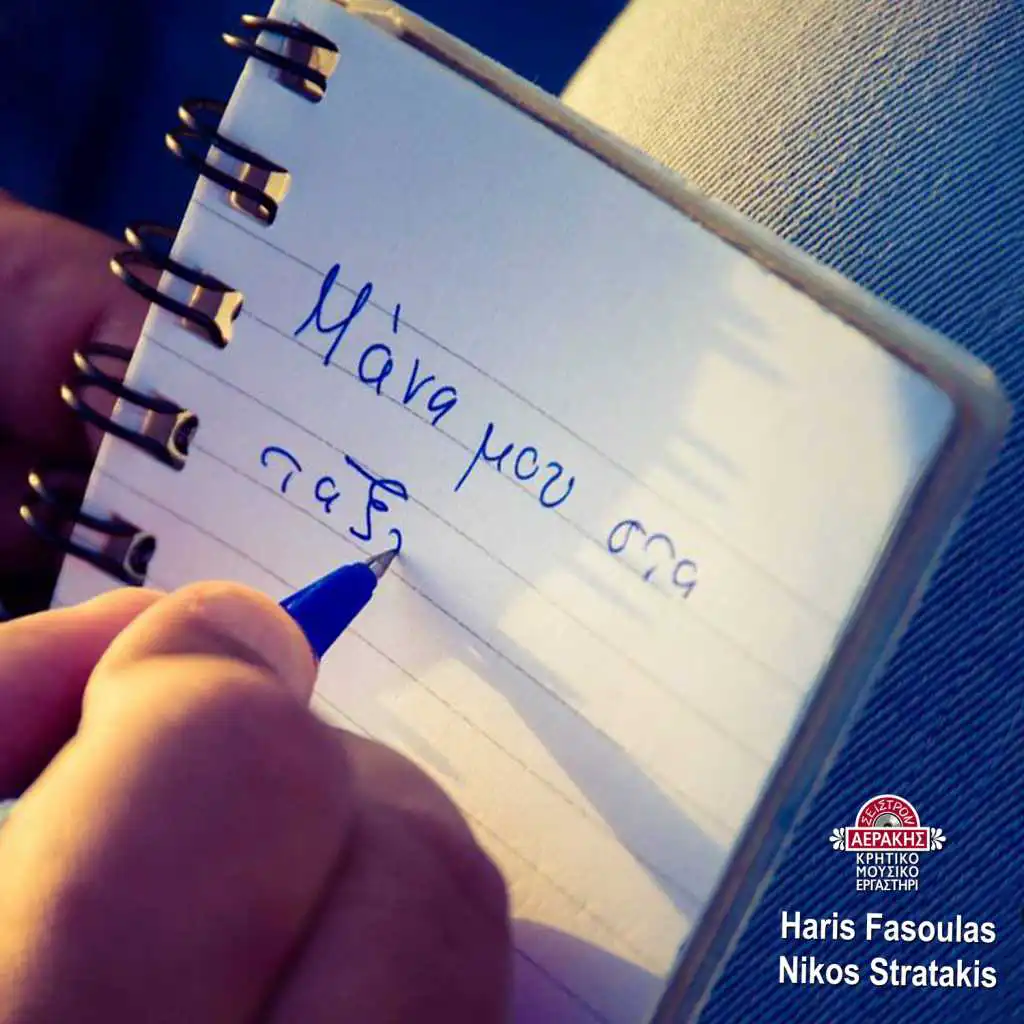 Μάνα μου στα
ταξι
ΣΕΙΣΤΡΟΝ
ΑΕΡΑΚΗΣ
ΚΡΗΤΙΚΟ
ΜΟΥΣΙΚΟ
ΕΡΓΑΣΤΗΡΙ
Haris Fasoulas
Nikos Stratakis